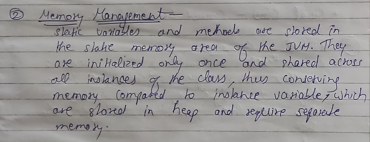 ② Memory Management -
static variables and methods are stored in
the static memory area of the JVM. They
are initialized only once and shared across
all instances of the class, thus conserving
memory compared to instance variable, which
are stored in heap and require separate
memory.